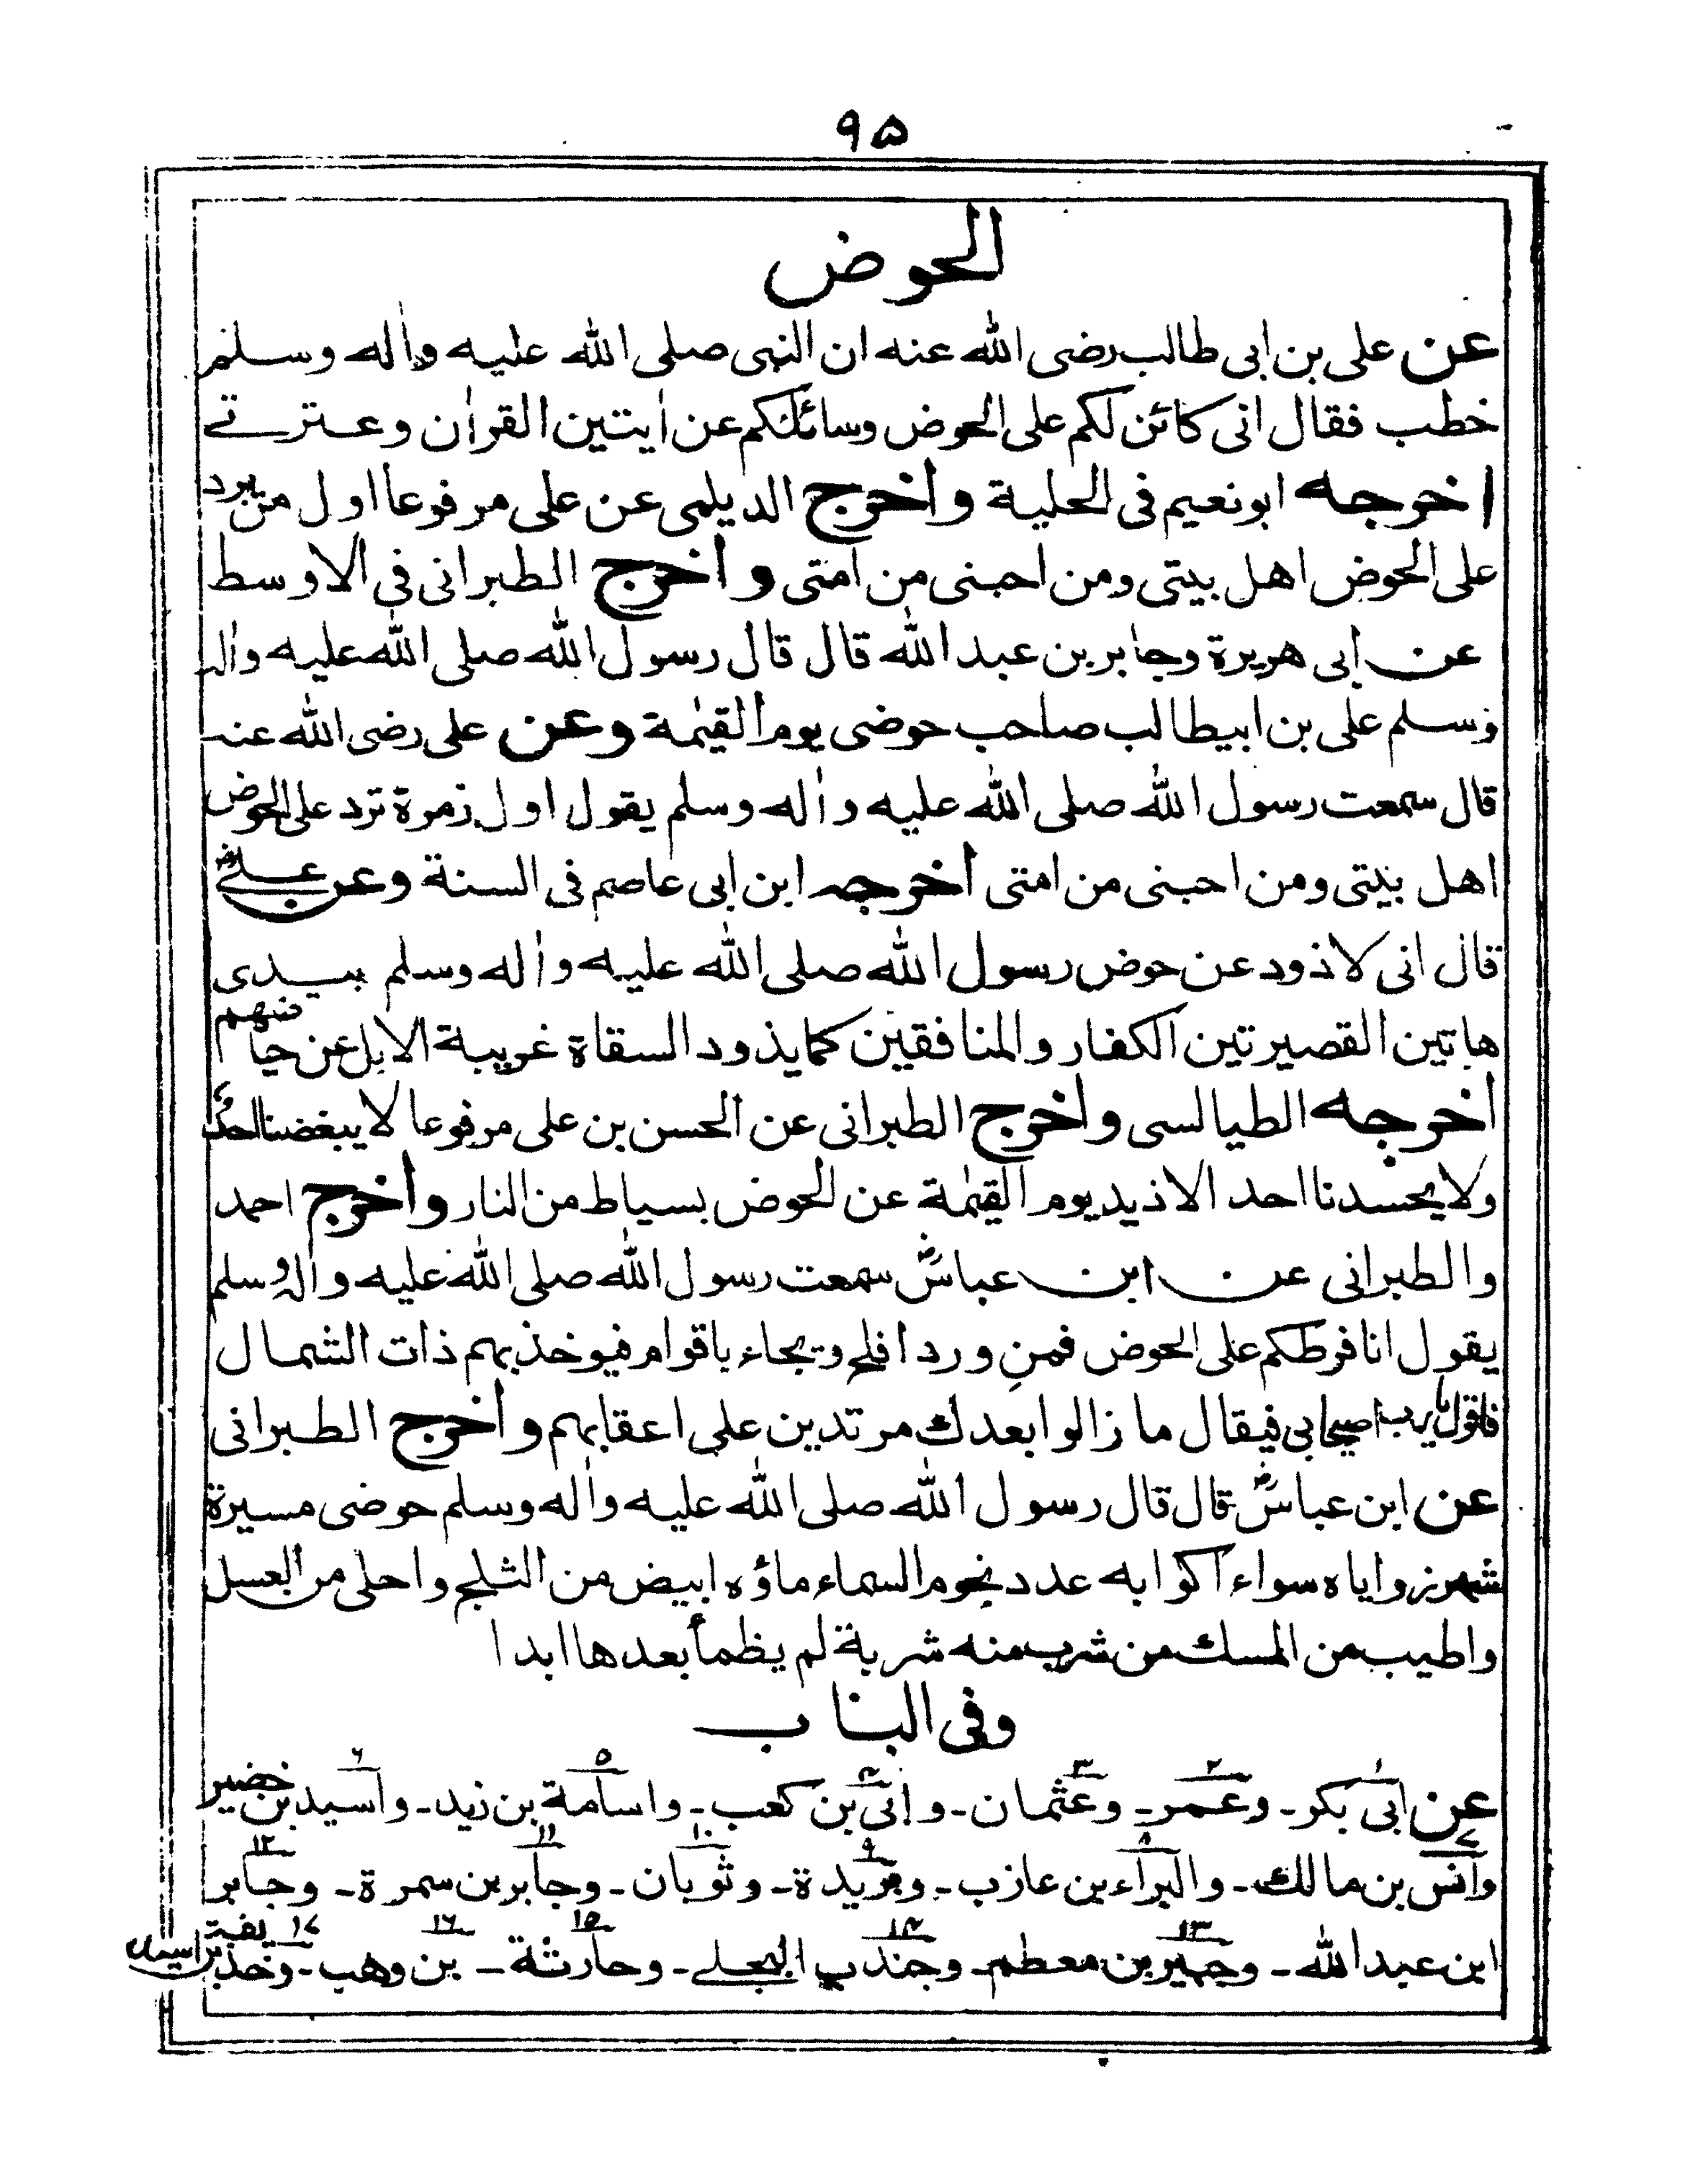 ٩۵
الحوض
عن علی بن ابی طالب رضی الله عنه ان النبی صلی الله علیه واٰله وسلم
خطب فقال انی کائن لکم علی الحوض وسائلکم عن اٰیتین القراٰن وعترتے
اخرجه ابونعیم فی الحلیة واخرج الدیلمی عن علی مرفوعا اول من یرد
علی الحوض اهل بیتی ومن احبنی من امتی واخرج الطبرانی فی الاوسط
عن ابی هریرة وجابر بن عبد الله قال قال رسول الله صلی الله علیه واٰله
وسلم علی بن ابیطالب صاحب حوضی یوم القیٰمة وعن علی رضی الله عنه
قال سمعت رسول الله صلی الله علیه واٰله وسلم یقول اول زمرة ترد علی الحوض
اهل بیتی ومن احبنی من امتی اخرجه ابن ابی عاصم فی السنة وعن علیؓ
قال انی لاذود عن حوض رسول الله صلی الله علیه واٰله وسلم بیدی
هاتین القصیرتین الکفار والمنافقین کما یذود السقاة غریبة الابل عن حیاضهم
اخرجه الطیالسی واخرج الطبرانی عن الحسن بن علی مرفوعا لا یبغضنا احد
ولا یحسدنا احد الا ذید یوم القیٰمة عن الحوض بسیاط من النار واخرج احمد
والطبرانی عن ابن عباسؓ سمعت رسول الله صلی الله علیه واٰله وسلم
یقول انا فرطکم علی الحوض فمن ورد افلح ویجاء باقوام فیوخذ بهم ذات الشمال
فاقول یارب اصیحابی فیقال ما زالوا بعدك مرتدین علی اعقابهم واخرج الطبرانی
عن ابن عباسؓ قال قال رسول الله صلی الله علیه واٰله وسلم حوضی مسیرة
شهر وزوایاه سواء اکوابه عدد نجوم السماء ماؤه ابیض من الثلج واحلی من العسل
واطیب من المسك من شرب منه شربة لم یظمأ بعدها ابدا
وفی الباب
عن ابی بکر۔ وعمر۔ وعثمان۔ وابی بن کعب۔ واسامة بن زید۔ واسید بن حضیر
وانس بن مالك۔ والبراء بن عازب۔ وبریدة۔ وثوبان۔ وجابر بن سمرة۔ وجابر
ابن عبد الله۔ وجبیر بن معطم۔ وجندب البجلے۔ وحارثة۔ بن وهب۔ وحذیفة بن اسید